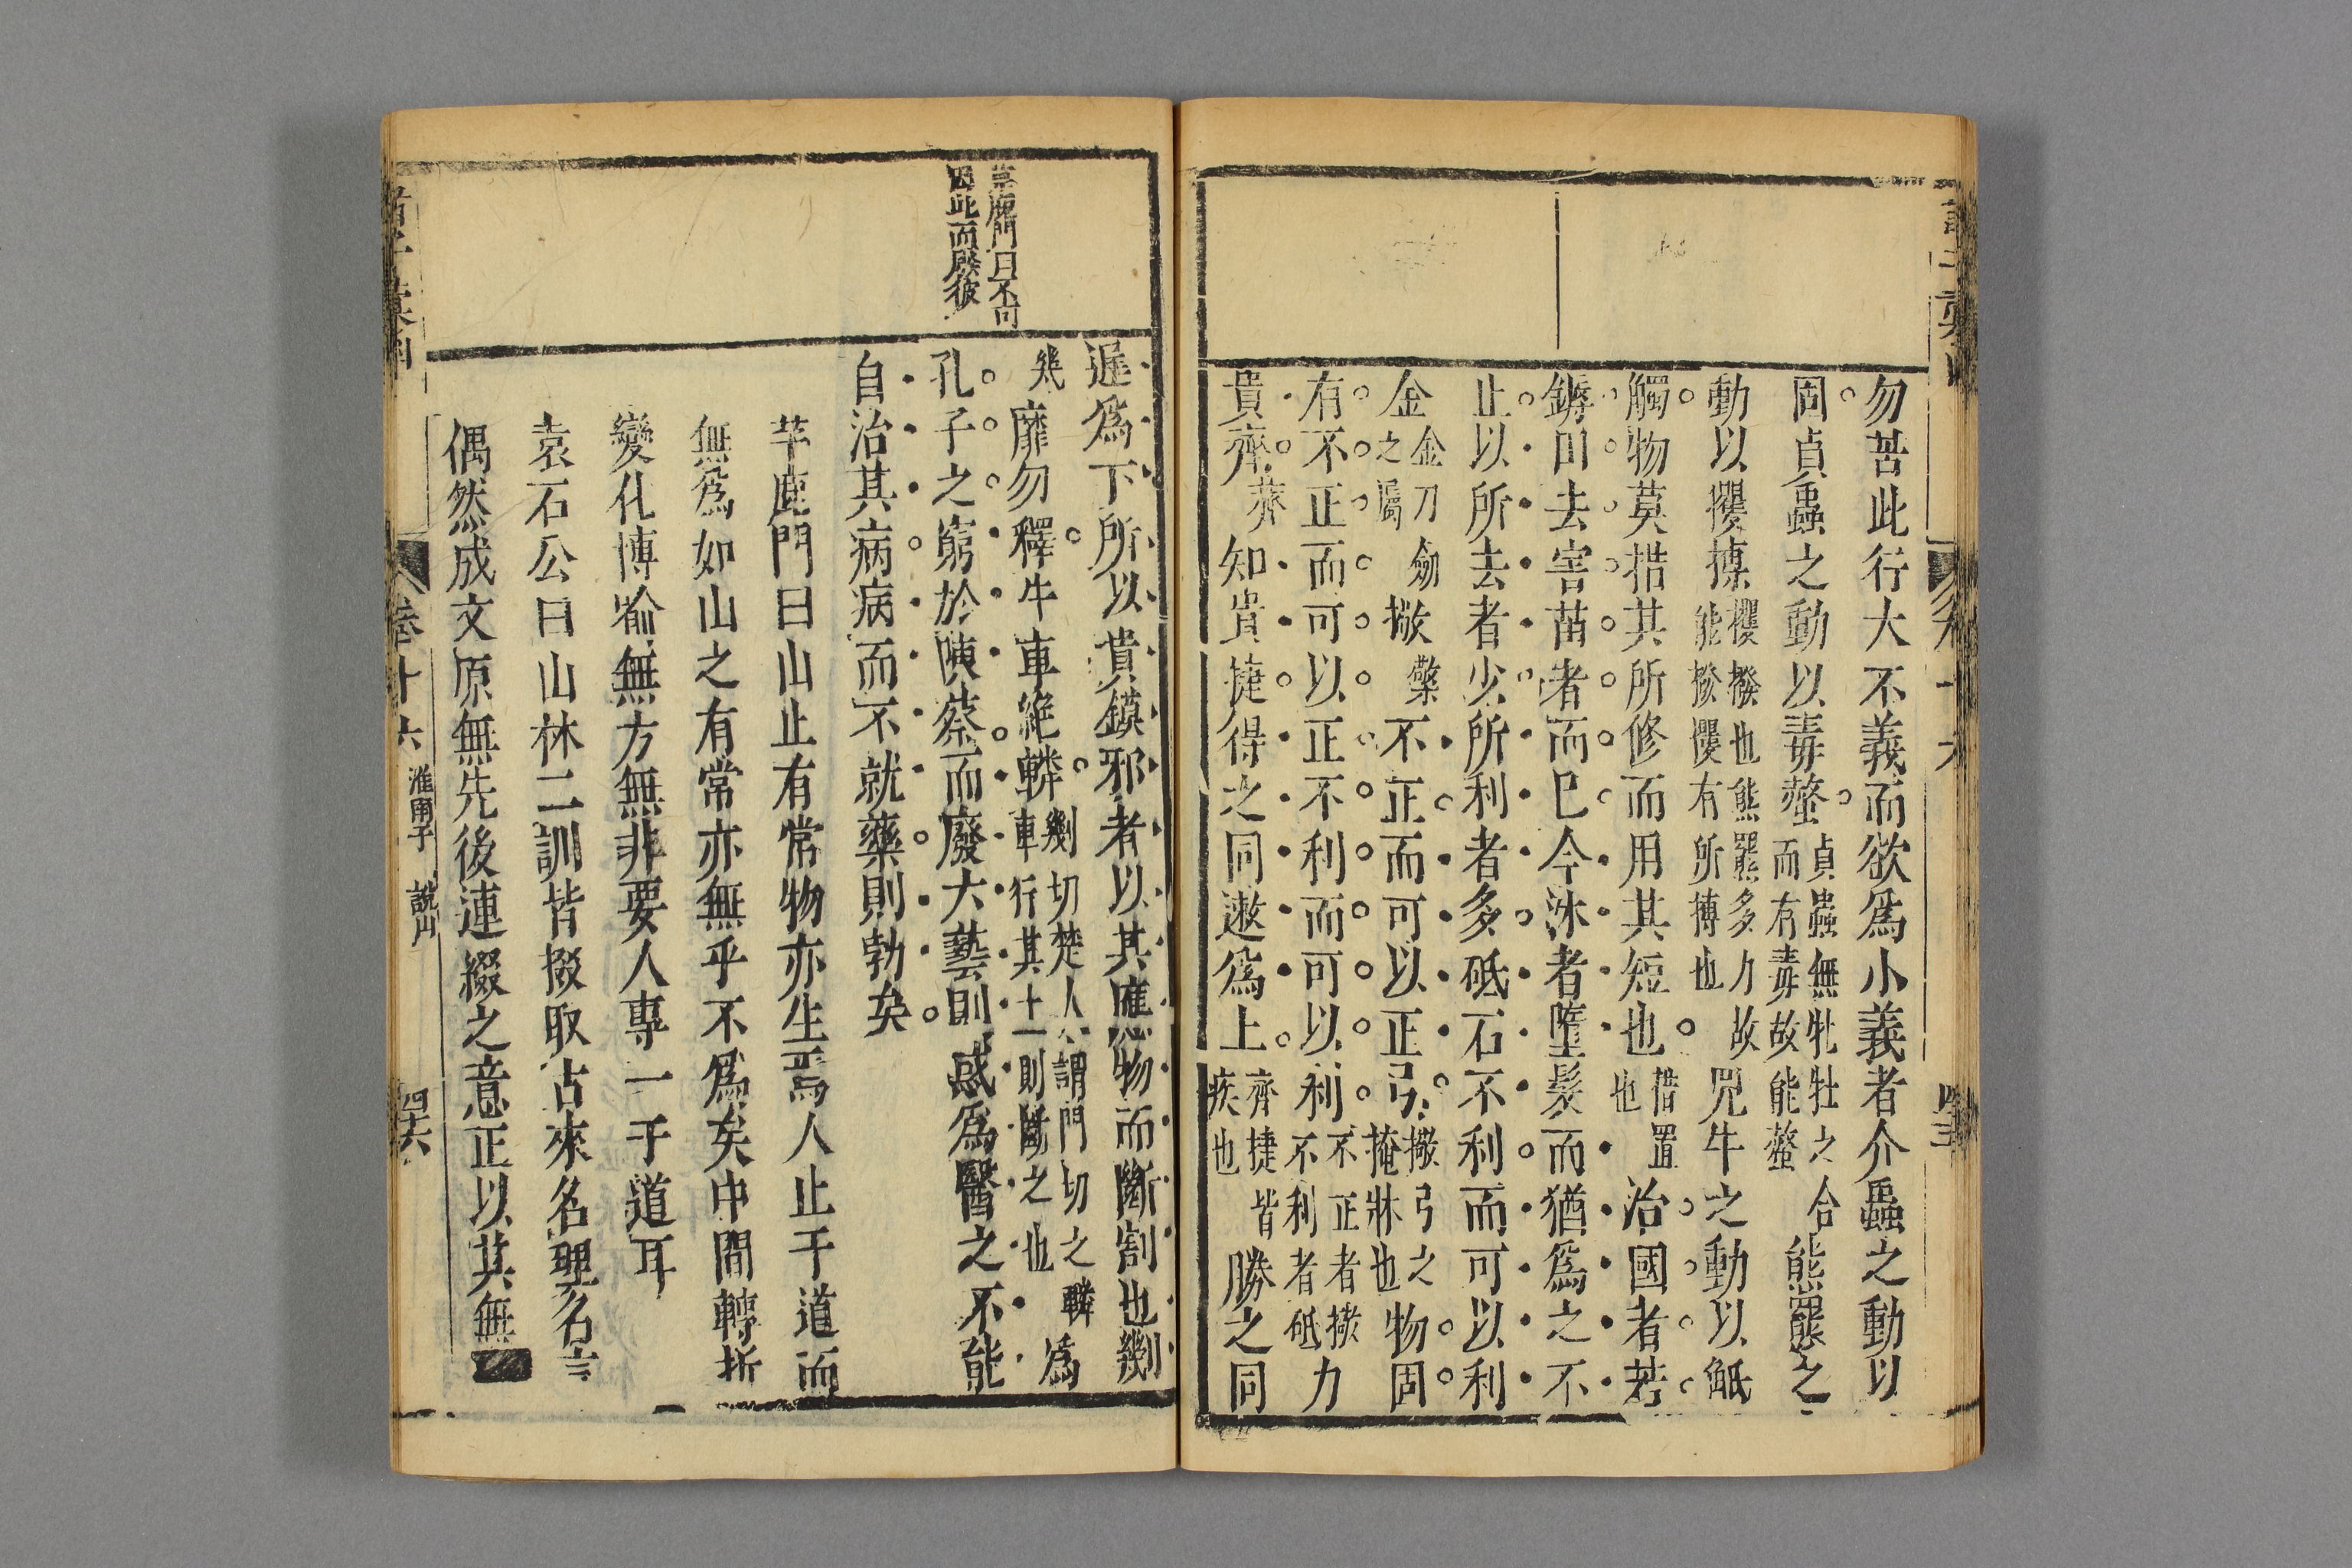 勿苦此行大不義而欲爲小義者介蟲之動以
固貞蟲之動以毒螫貞蟲無牝牡之合
而有毒故能螫熊羆之
動以攫搏攫撥也熊羆多力故
能撥攫有所搏也兕牛之動以觝
觸物莫措其所修而用其短也措置
也治國者若
鎒田去害苗者而已今沐者墮髮而猶爲之不
止以所去者少所利者多砥石不利而可以利
金金刀劒
之屬撽檠不正而可以正弓撽弓之
掩牀也物固
有不正而可以正不利而可以利不正者撽
不利者砥力
貴齊薺知貴捷得之同遫爲上齊捷皆
疾也勝之同
茅鹿門曰不可
因此而廢彼
遲爲下所以貴鏌邪者以其應物而斷割也劙
幾靡勿釋牛車絶轔劙切楚人謂門切之轔
車行其上則斷之也爲
孔子之窮於陳蔡而廢六藝則惑爲醫之不能
自治其病病而不就藥則勃矣
茅鹿門曰山止有常物亦生焉人止于道而
無爲如山之有常亦無乎不爲矣中間轉折
變化博喻無方無非要人專一于道耳
袁石公曰山林二訓皆掇取古來名理名言
偶然成文原無先後連綴之意正以其無
卷十六 淮南子 說山 四十六